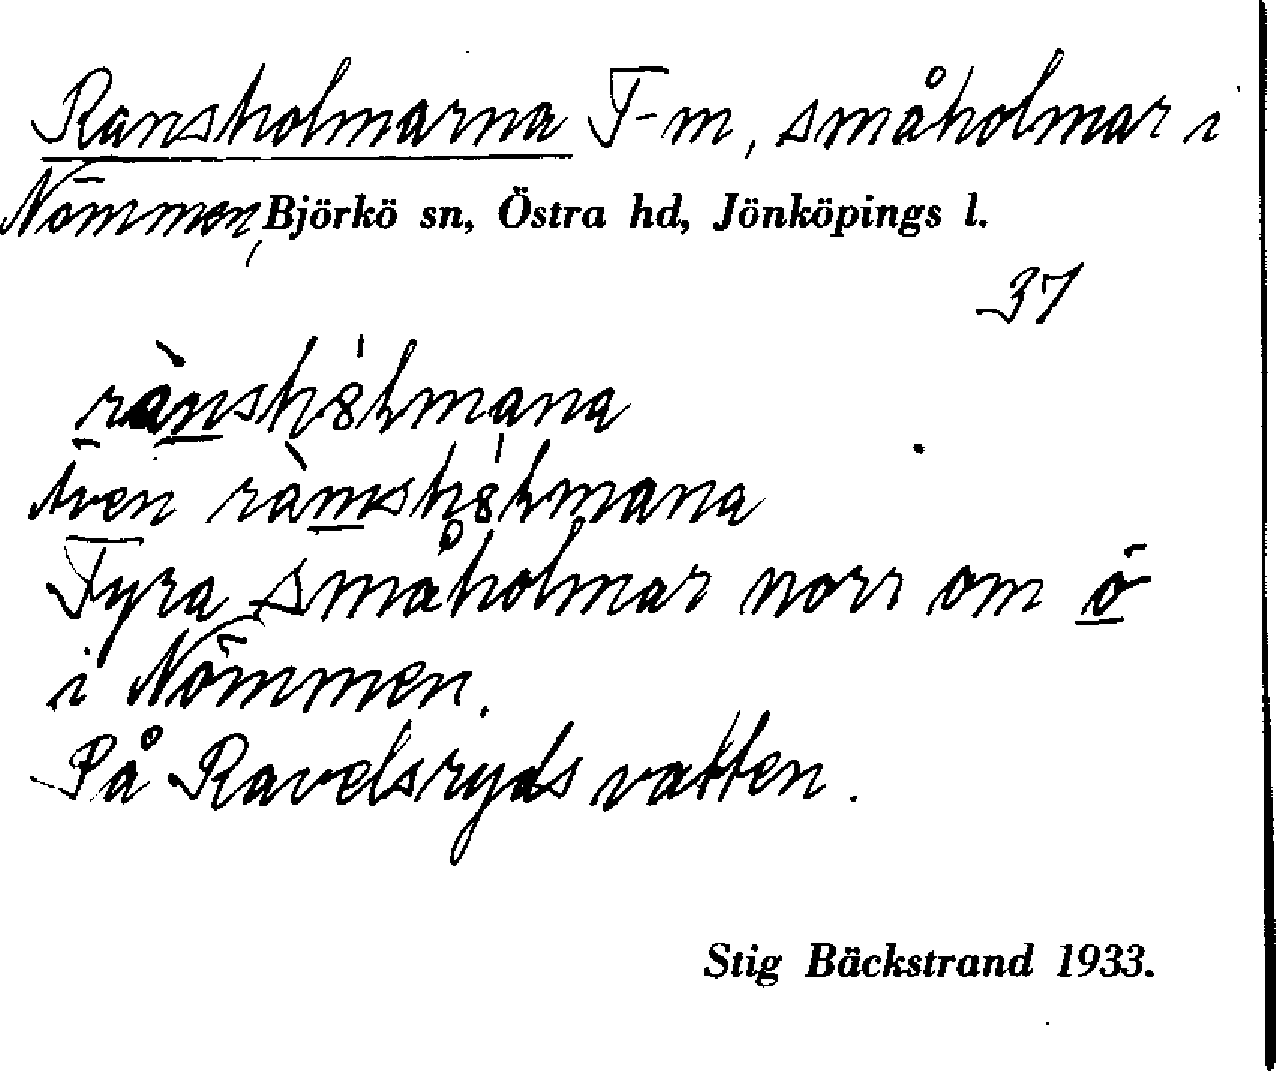 Ransholmarna T-m, småholmar i
Nömmen, Björkö sn, Östra hd, Jönköpings l.
37
rànshȯlmana
även ràmshȯlmana
Fyra småholmar norr om ö
i Nömmen.
På Ravelsryds vatten.
Stig Bäckstrand 1933.